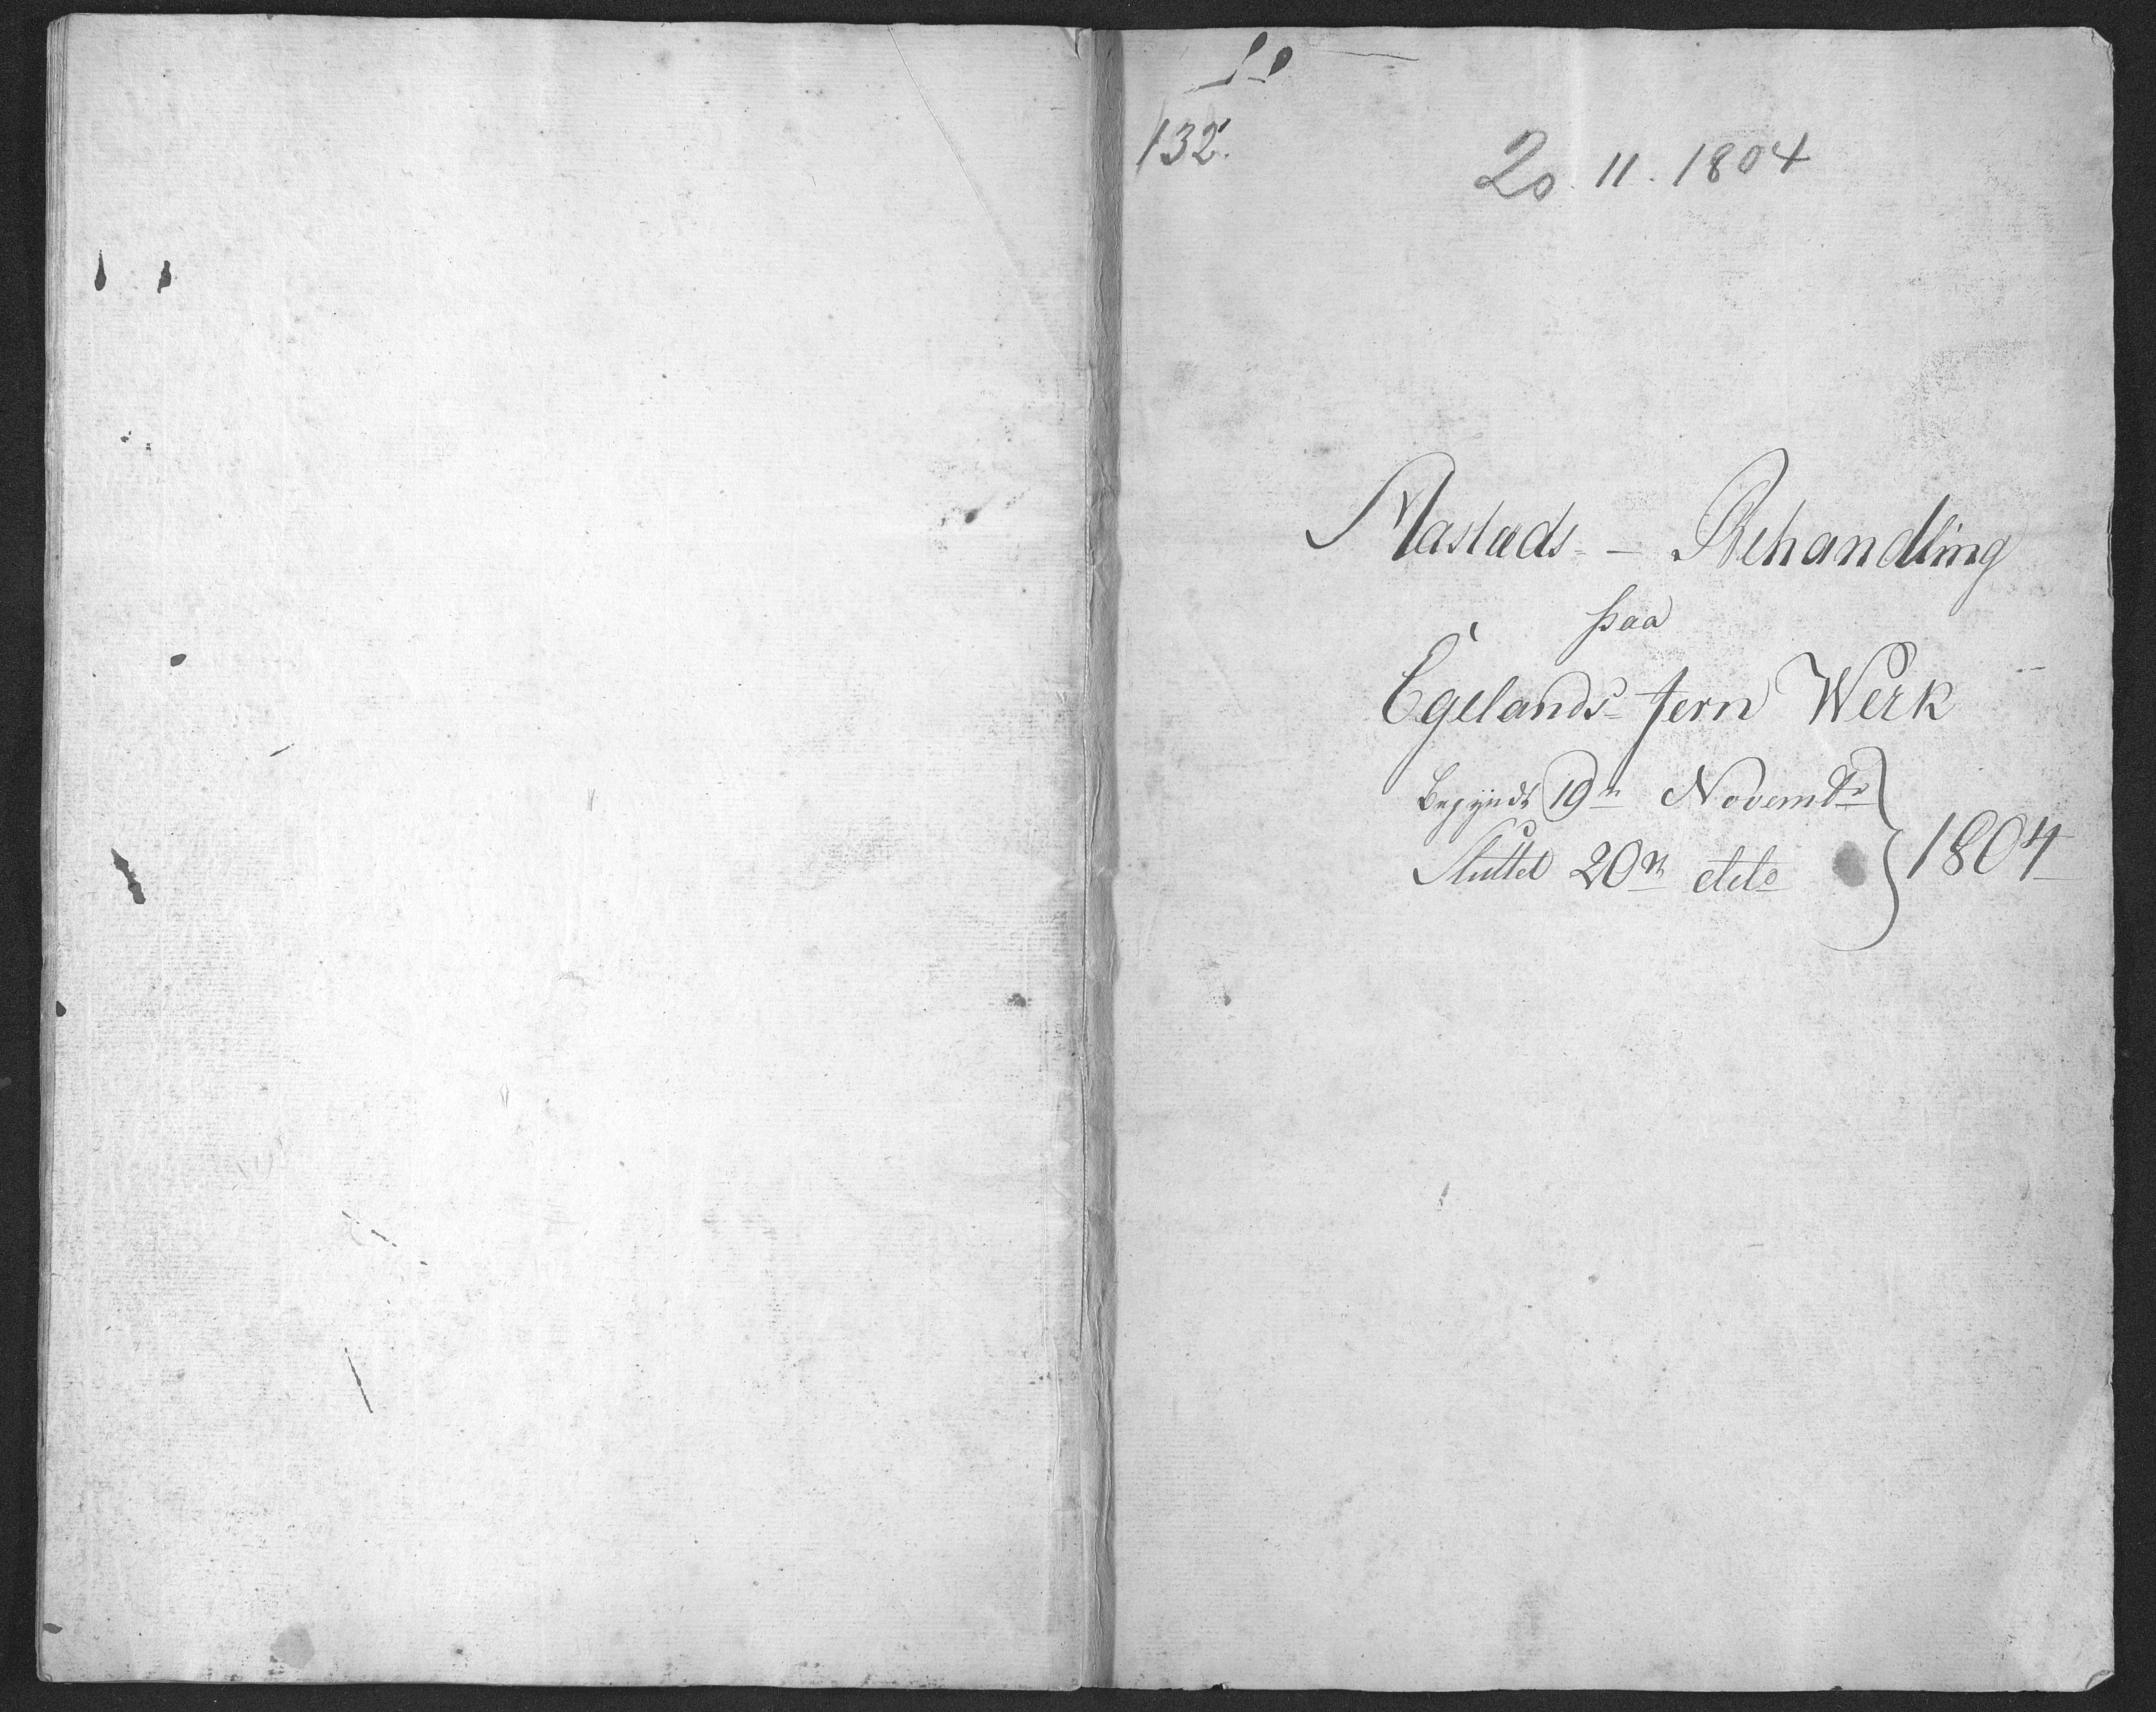 132.
20. 11. 1804
Aastæds- - Behandling
paa
Egelands- Jern Werk
Begyndt 19n Novembr
Sluttet 20n dito
1804